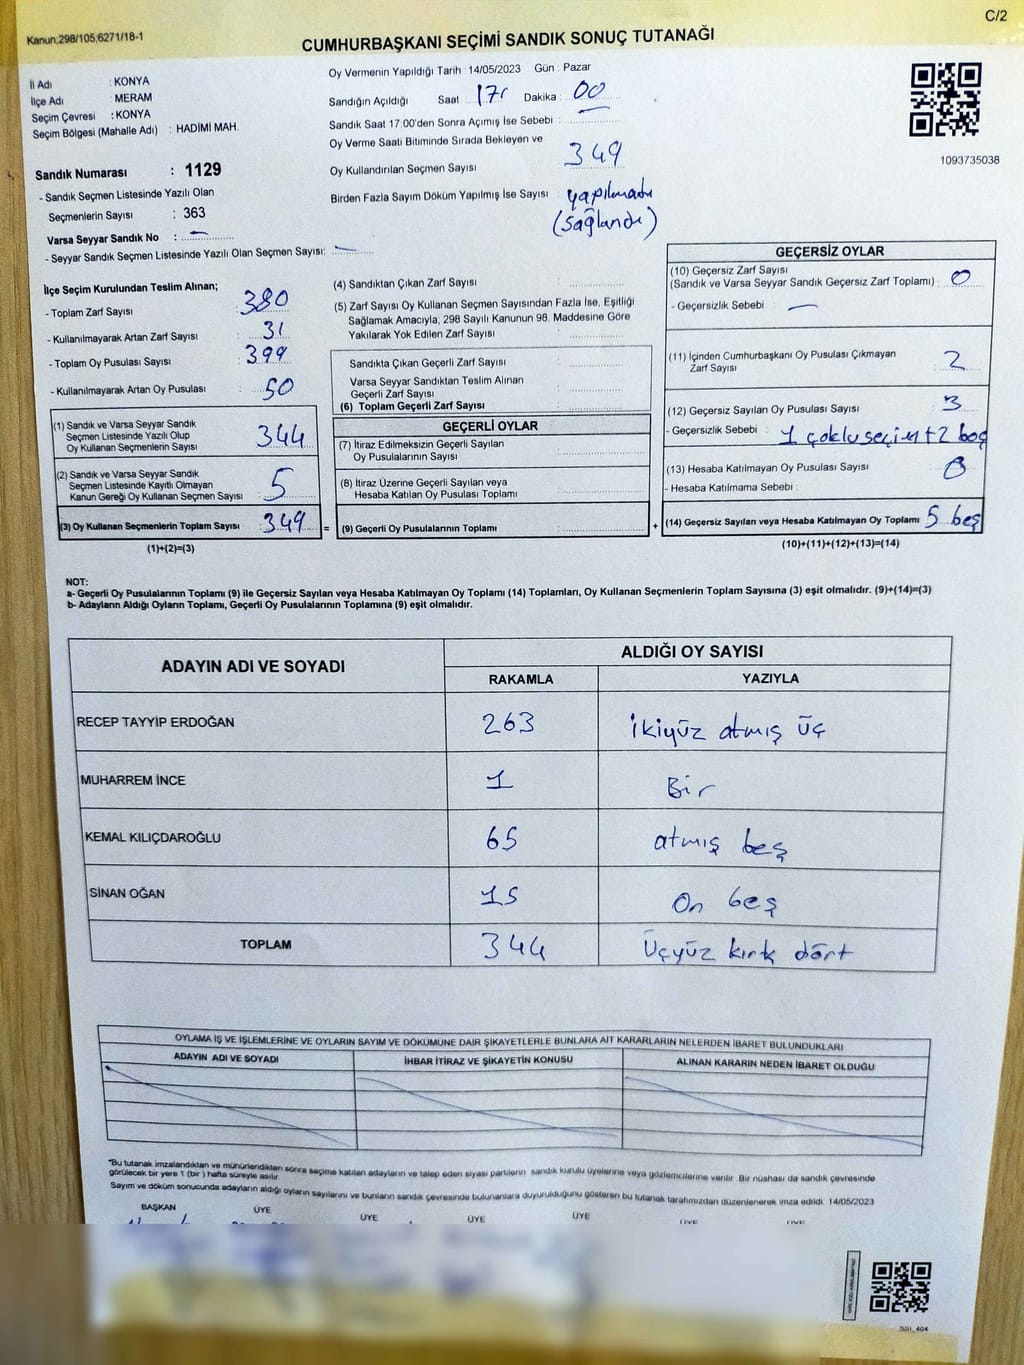 C/2
Kanun;298/105;6271/18-1
CUMHURBAŞKANI SEÇİMİ SANDIK SONUÇ TUTANAĞI
İl Adı : KONYA
İlçe Adı : MERAM
Seçim Çevresi : KONYA
Seçim Bölgesi (Mahalle Adı) : HADİMİ MAH.
Sandık Numarası : 1129
- Sandık Seçmen Listesinde Yazılı Olan
Seçmenlerin Sayısı : 363
Varsa Seyyar Sandık No : —
- Seyyar Sandık Seçmen Listesinde Yazılı Olan Seçmen Sayısı: —
Oy Vermenin Yapıldığı Tarih : 14/05/2023 Gün : Pazar
Sandığın Açıldığı Saat : 17 Dakika : 00
Sandık Saat 17:00'den Sonra Açımış İse Sebebi :
Oy Verme Saati Bitiminde Sırada Bekleyen ve
Oy Kullandırılan Seçmen Sayısı : 349
Birden Fazla Sayım Döküm Yapılmış İse Sayısı : yapılmadı
(sağlandı)
1093735038
İlçe Seçim Kurulundan Teslim Alınan;
- Toplam Zarf Sayısı : 380
- Kullanılmayarak Artan Zarf Sayısı : 31
- Toplam Oy Pusulası Sayısı : 399
- Kullanılmayarak Artan Oy Pusulası : 50
(1) Sandık ve Varsa Seyyar Sandık
Seçmen Listesinde Yazılı Olup
Oy Kullanan Seçmenlerin Sayısı : 344
(2) Sandık ve Varsa Seyyar Sandık
Seçmen Listesinde Kayıtlı Olmayan
Kanun Gereği Oy Kullanan Seçmen Sayısı : 5
(3) Oy Kullanan Seçmenlerin Toplam Sayısı : 349 =
(1)+(2)=(3)
(4) Sandıktan Çıkan Zarf Sayısı :
(5) Zarf Sayısı Oy Kullanan Seçmen Sayısından Fazla İse, Eşitliği
Sağlamak Amacıyla, 298 Sayılı Kanunun 98. Maddesine Göre
Yakılarak Yok Edilen Zarf Sayısı :
Sandıkta Çıkan Geçerli Zarf Sayısı :
Varsa Seyyar Sandıktan Teslim Alınan
Geçerli Zarf Sayısı :
(6) Toplam Geçerli Zarf Sayısı :
GEÇERLİ OYLAR
(7) İtiraz Edilmeksizin Geçerli Sayılan
Oy Pusulalarının Sayısı :
(8) İtiraz Üzerine Geçerli Sayılan veya
Hesaba Katılan Oy Pusulası Toplamı :
(9) Geçerli Oy Pusulalarının Toplamı : +
GEÇERSİZ OYLAR
(10) Geçersiz Zarf Sayısı
(Sandık ve Varsa Seyyar Sandık Geçersiz Zarf Toplamı) : 0
- Geçersizlik Sebebi : —
(11) İçinden Cumhurbaşkanı Oy Pusulası Çıkmayan
Zarf Sayısı : 2
(12) Geçersiz Sayılan Oy Pusulası Sayısı : 3
- Geçersizlik Sebebi : 1 çoklu seçim + 2 boş
(13) Hesaba Katılmayan Oy Pusulası Sayısı : 0
- Hesaba Katılmama Sebebi :
(14) Geçersiz Sayılan veya Hesaba Katılmayan Oy Toplamı : 5 beş
(10)+(11)+(12)+(13)=(14)
NOT:
a- Geçerli Oy Pusulalarının Toplamı (9) ile Geçersiz Sayılan veya Hesaba Katılmayan Oy Toplamı (14) Toplamları, Oy Kullanan Seçmenlerin Toplam Sayısına (3) eşit olmalıdır. (9)+(14)=(3)
b- Adayların Aldığı Oyların Toplamı, Geçerli Oy Pusulalarının Toplamına (9) eşit olmalıdır.
ADAYIN ADI VE SOYADI ALDIĞI OY SAYISI
RAKAMLA YAZIYLA
RECEP TAYYİP ERDOĞAN 263 İkiyüz atmış üç
MUHARREM İNCE 1 Bir
KEMAL KILIÇDAROĞLU 65 atmış beş
SİNAN OĞAN 15 On beş
TOPLAM 344 Üçyüz kırk dört
OYLAMA İŞ VE İŞLEMLERİNE VE OYLARIN SAYIM VE DÖKÜMÜNE DAİR ŞİKAYETLERLE BUNLARA AİT KARARLARIN NELERDEN İBARET BULUNDUKLARI
ADAYIN ADI VE SOYADI İHBAR İTİRAZ VE ŞİKAYETİN KONUSU ALINAN KARARIN NEDEN İBARET OLDUĞU
*Bu tutanak imzalandıktan ve mühürlendikten sonra seçime katılan adayların ve talep eden siyasi partilerin sandık kurulu üyelerine veya gözlemcilerine verilir. Bir nüshası da sandık çevresinde
görülecek bir yere 1 (bir) hafta süreyle asılır.
Sayım ve döküm sonucunda adayların aldığı oyların sayılarını ve bunların sandık çevresinde bulunanlara duyurulduğunu gösteren bu tutanak tarafımızdan düzenlenerek imza edildi. 14/05/2023
BAŞKAN ÜYE ÜYE ÜYE ÜYE ÜYE ÜYE
SSI_404